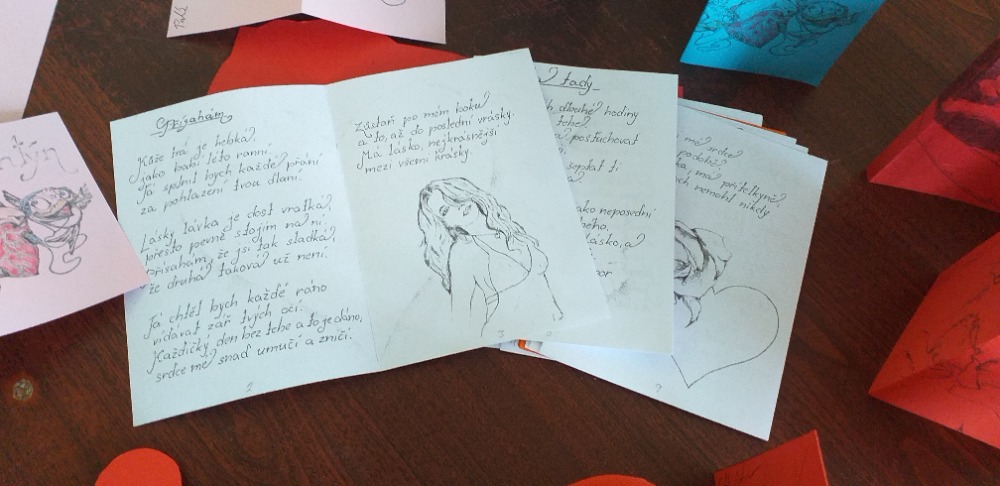 Přísahám
Kůže tvá je hebká
jako babí léto ranní.
Já splnil bych každé přání
za pohlazení tvou dlaní.
Lásky lávka je dost vratká,
přesto pevně stojím na ní.
přísahám, že jsi tak sladká,
že druhá taková už není.
Já chtěl bych každé ráno
vídávat zář tvých očí.
Každičký den bez tebe a to je dáno,
srdce mé snad umučí a zničí.
2
Zůstaň po mém boku
a to, až do poslední vrásky.
Má lásko, nejkrásnější
mezi všemi krásky.
3
tady
dlouhé hodiny
tebe
postouchovat
šeptat ti
jako neposední
lásko, a
mé srdce
podobá
má přítelkyně
nemohl nikdy